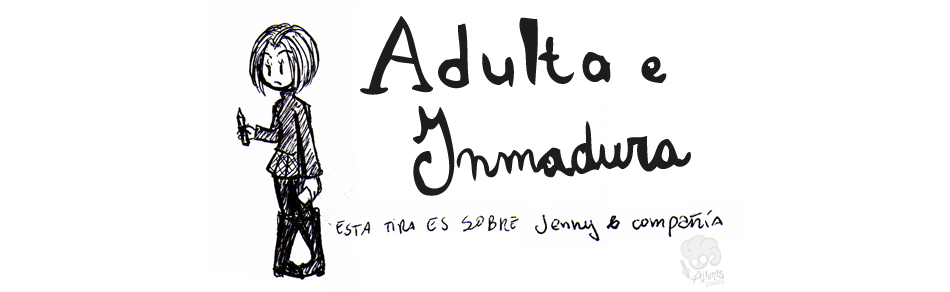 Adulta e
Inmadura
ESTA TIRA ES SOBRE Jenny & compañía